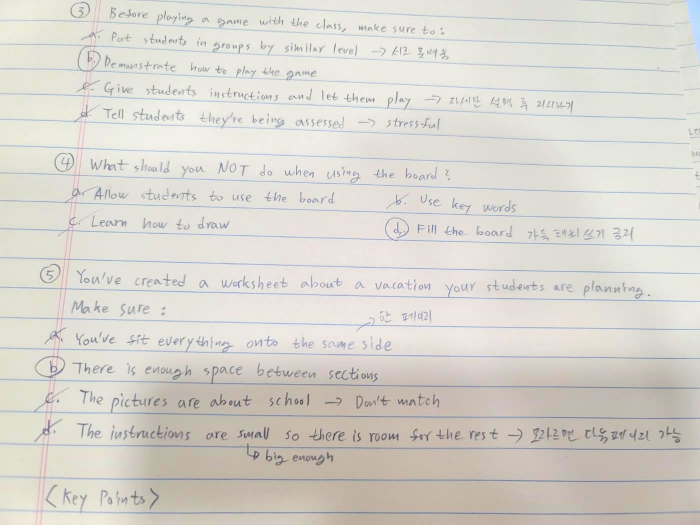 ③ Before playing a game with the class, make sure to :
a. Put students in groups by similar level → 서로 도와줌
b. Demonstrate how to play the game
c. Give students instructions and let them play → 자세한 설명 후
d. Tell students they're being assessed → stressful
④ What should you NOT do when using the board?
a. Allow students to use the board b. Use key words
c. Learn how to draw d. Fill the board 가득 쓰기 금지
⑤ You've created a worksheet about a vacation your students are planning.
Make sure :
→ 한 페이지
a. You've fit everything onto the same side
b There is enough space between sections
c. The pictures are about school → Don't match
d. The instructions are small so there is room for the rest → 모자르면 다음 페이지 가능
↳ big enough
<Key Points>